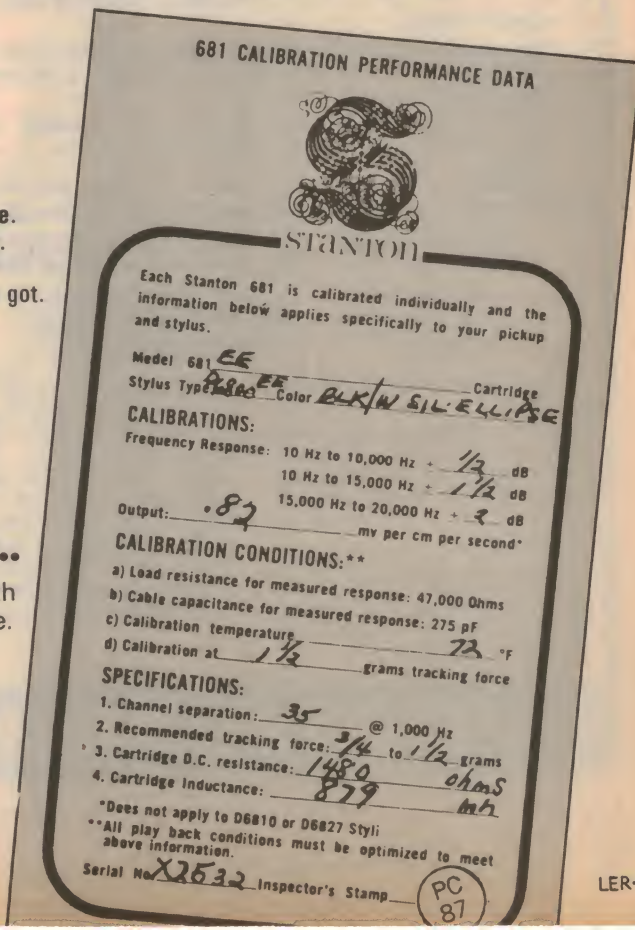 681 CALIBRATION PERFORMANCE DATA
STANTON
e.
got.
Each Stanton 681 is calibrated individually and the
information below applies specifically to your pickup
and stylus.
Model 681 EE Cartridge
Stylus Type EE Color BLK/W SIL·ELLIPSE
CALIBRATIONS:
Frequency Response: 10 Hz to 10,000 Hz ± 1/2 dB
10 Hz to 15,000 Hz ± 1 1/2 dB
15,000 Hz to 20,000 Hz ± 2 dB
Output: .82 mv per cm per second*
CALIBRATION CONDITIONS:**
a) Load resistance for measured response: 47,000 Ohms
b) Cable capacitance for measured response: 275 pF
c) Calibration temperature 72 °F
d) Calibration at 1 1/2 grams tracking force
th
e.
SPECIFICATIONS:
1. Channel separation: 35 @ 1,000 Hz
2. Recommended tracking force: 3/4 to 1 1/2 grams
3. Cartridge D.C. resistance: 1480 ohms
4. Cartridge Inductance: 879 mh
*Does not apply to D6810 or D6827 Styli
**All play back conditions must be optimized to meet
above information.
Serial No X2532 Inspector's Stamp PC
87
LER